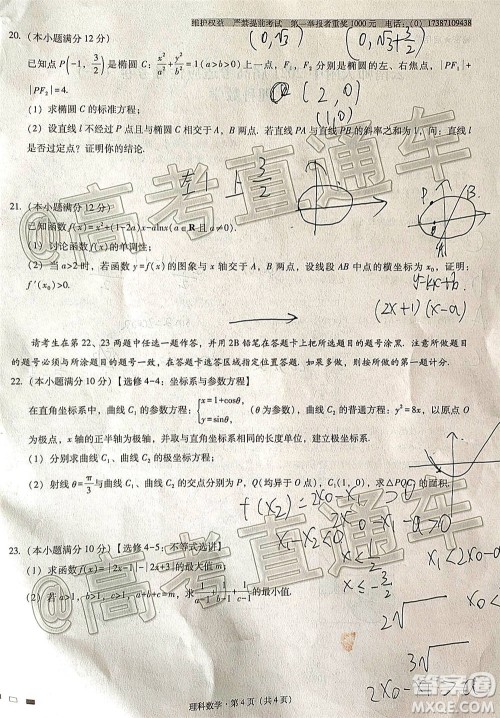 维护权益 严禁提前考试 第一举报者重奖1000元 电话:(0)17387109438
20.(本小题满分12分)
(0,√3) (0,√3+3/2)
已知点P(-1,3/2)是椭圆C:x²/a²+y²/b²=1(a>b>0)上一点,F₁,F₂分别是椭圆的左、右焦点,|PF₁|+
|PF₂|=4.
(2,0)
(1)求椭圆C的标准方程;
(2)设直线l不经过P点且与椭圆C相交于A,B两点.若直线PA与直线PB的斜率之和为1,问:直线l
是否过定点?证明你的结论.
21.(本小题满分12分)
已知函数f(x)=x²+(1-2a)x-alnx(a∈R且a≠0).
(1)讨论函数f(x)的单调性;
(2)当a>2时,若函数y=f(x)的图象与x轴交于A,B两点,设线段AB中点的横坐标为x₀,证明:
f′(x₀)>0.
y=kx+b
(2x+1)(x-a)
请考生在第22、23两题中任选一题作答,并用2B铅笔在答题卡上将所选题目的题号涂黑.注意所做题目
的题号必须与所涂题目的题号一致,在答题卡选答区域指定位置答题.如果多做,则按所做的第一题计分.
22.(本小题满分10分)【选修4-4:坐标系与参数方程】
在直角坐标系中,曲线C₁的参数方程为{x=1+cosθ, y=sinθ,(θ为参数),曲线C₂的直角坐标方程:y²=8x,以O
为极点,x轴的正半轴为极轴,取与直角坐标系相同的长度单位,建立极坐标系.
(1)分别求曲线C₁,曲线C₂的极坐标方程;
(2)射线θ=π/3与曲线C₁,C₂的交点分别为P,Q(均异于O点),C(1,0),求△PQC的面积.
f(x₂) 2x₀-x₁>0
23.(本小题满分10分)【选修4-5:不等式选讲】
(1)求函数f(x)=|2x-1|-|2x+3|的最大值m;
(2)若a>1,b>1,c>1,a+b+c=m,求1/(a-1)+1/(b-1)+1/(c-1)的最小值.
x≤-3/2
2√
3√
理科数学·第4页(共4页)
@高考直通车
@高考直通车